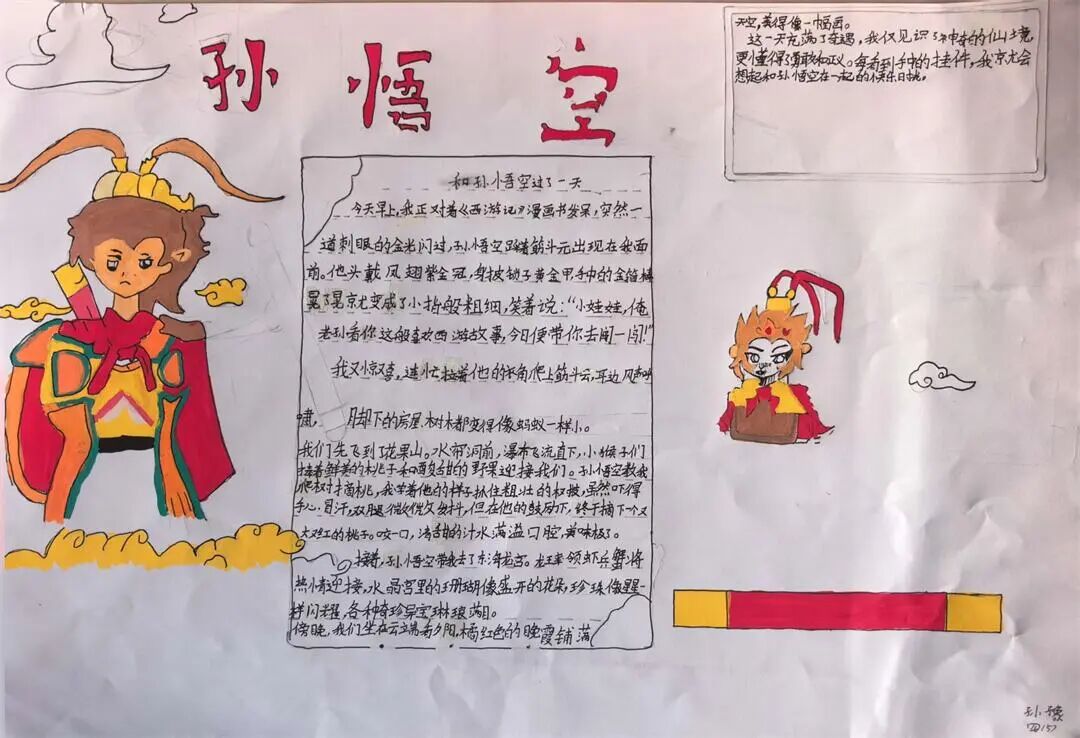 孙悟空
和孙悟空过了一天
今天早上,我正对着《西游记》漫画书发呆,突然一
道刺眼的金光闪过,孙悟空踩着筋斗云出现在我面
前。他头戴凤翅紫金冠,身披锁子黄金甲手中的金箍棒
晃了晃竟变成了小指般粗细,笑着说:“小娃娃,俺
老孙看你这般喜欢西游故事,今日便带你去闹一闹!”
我又惊又喜,连忙拉着他的衣角爬上筋斗云,耳边风声呼
啸, 脚下的房屋、树木都变得像蚂蚁一样小。
我们先飞到了花果山。水帘洞前,瀑布飞流直下,小猴子们
捧着鲜美的桃子和酸甜的野果迎接我们。孙悟空教我
爬树摘桃,我学着他的样子抓住粗壮的树枝,虽然吓得
手心冒汗,双腿微微发抖,但在他的鼓励下,终于摘下一个又
大又红的桃子。咬一口,清甜的汁水满溢口腔,美味极了。
接着,孙悟空带我去了东海龙宫。龙王率领虾兵蟹将
热情迎接,水晶宫里的珊瑚像盛开的花朵,珍珠像星星一
样闪耀,各种奇珍异宝琳琅满目。
傍晚,我们坐在云端看夕阳,橘红色的晚霞铺满
天空,美得像一幅画。
这一天充满了奇遇,我仅见识了神奇的仙境
更懂得了勇敢和正义。每看到手中的挂件,我就会
想起和孙悟空在一起的快乐日子。
孙豫